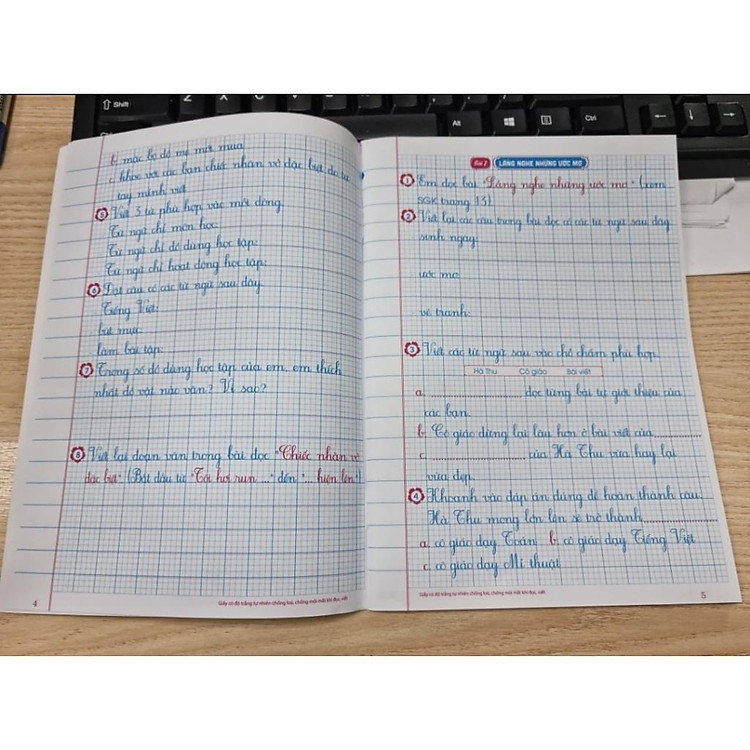 Shift
Z
X
C
V
B
N
M
Alt
Ctrl
b. mặc bộ đồ mẹ mới mua.
c. khoe với các bạn chiếc nhãn vở đặc biệt do tự
tay mình viết
5 Viết 5 từ phù hợp vào mỗi dòng.
Từ ngữ chỉ môn học:
Từ ngữ chỉ đồ dùng học tập:
Từ ngữ chỉ hoạt động học tập:
6 Đặt câu có các từ ngữ sau đây.
Tiếng Việt:
bút mực:
làm bài tập:
7 Trong số đồ dùng học tập của em, em thích
nhất đồ vật nào? Vì sao?
8 Viết lại đoạn văn trong bài đọc "Chiếc nhãn vở
đặc biệt" (Bắt đầu từ "Tôi hơi run ..." đến "... hiện lên")
4
Giấy có độ trắng tự nhiên chống loá, chống mỏi mắt khi đọc, viết
Bài 2 LẮNG NGHE NHỮNG ƯỚC MƠ
1 Em đọc bài "Lắng nghe những ước mơ" (xem
SGK trang 13)
2 Viết lại các câu trong bài đọc có các từ ngữ sau đây
sinh ngày:
ước mơ:
vẽ tranh:
3 Viết các từ ngữ sau vào chỗ chấm phù hợp.
Hà Thu Cô giáo Bài viết
a. .................... đọc từng bài tự giới thiệu của
các bạn.
b. Cô giáo dừng lại lâu hơn ở bài viết của ....................
c. .................... của Hà Thu vừa hay lại
vừa đẹp.
4 Khoanh vào đáp án đúng để hoàn thành câu.
Hà Thu mong lớn lên sẽ trở thành ....................
a. cô giáo dạy Toán b. cô giáo dạy Tiếng Việt
c. cô giáo dạy Mĩ thuật
Giấy có độ trắng tự nhiên chống loá, chống mỏi mắt khi đọc, viết
5